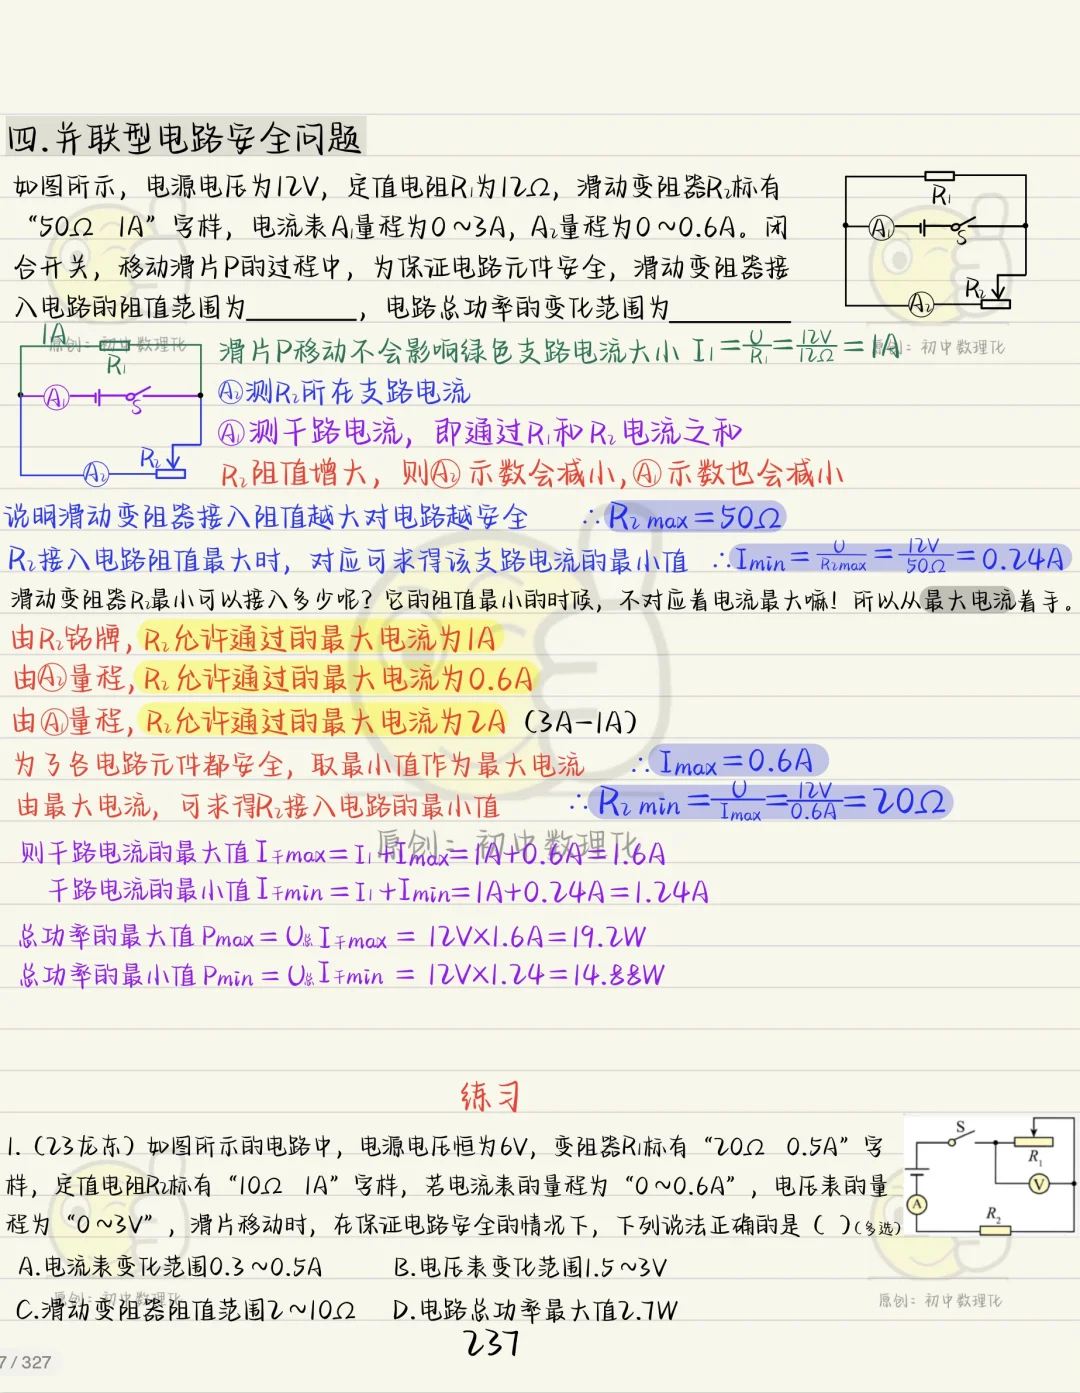 四.并联型电路安全问题
如图所示，电源电压为12V，定值电阻R₁为12Ω，滑动变阻器R₂标有
“50Ω 1A”字样，电流表A₁量程为0~3A，A₂量程为0~0.6A。闭
合开关，移动滑片P的过程中，为保证电路元件安全，滑动变阻器接
入电路的阻值范围为________，电路总功率的变化范围为________
R₁
A₁ S
R₂
A₂
原创：初中数理化
原创：初中数理化
1A
R₁
A₁ S
R₂
A₂
滑片P移动不会影响绿色支路电流大小 I₁=U/R₁=12V/12Ω=1A
A₂测R₂所在支路电流
A₁测干路电流，即通过R₁和R₂电流之和
R₂阻值增大，则A₂示数会减小，A₁示数也会减小
说明滑动变阻器接入阻值越大对电路越安全 ∴R₂max=50Ω
R₂接入电路阻值最大时，对应可求得该支路电流的最小值 ∴Imin=U/R₂max=12V/50Ω=0.24A
滑动变阻器R₂最小可以接入多少呢？它的阻值最小的时候，不对应着电流最大嘛！所以从最大电流着手。
由R₂铭牌，R₂允许通过的最大电流为1A
由A₂量程，R₂允许通过的最大电流为0.6A
由A₁量程，R₂允许通过的最大电流为2A（3A-1A）
为了各电路元件都安全，取最小值作为最大电流 ∴Imax=0.6A
由最大电流，可求得R₂接入电路的最小值 ∴R₂min=U/Imax=12V/0.6A=20Ω
原创：初中数理化
则干路电流的最大值I干max=I₁+Imax=1A+0.6A=1.6A
干路电流的最小值I干min=I₁+Imin=1A+0.24A=1.24A
总功率的最大值Pmax=U总I干max=12V×1.6A=19.2W
总功率的最小值Pmin=U总I干min=12V×1.24=14.88W
练习
1.（23龙东）如图所示的电路中，电源电压恒为6V，变阻器R₁标有“20Ω 0.5A”字
样，定值电阻R₂标有“10Ω 1A”字样，若电流表的量程为“0~0.6A”，电压表的量
程为“0~3V”，滑片移动时，在保证电路安全的情况下，下列说法正确的是（ ）(多选)
S
R₁
V
A
R₂
A.电流表变化范围0.3~0.5A B.电压表变化范围1.5~3V
原创：初中数理化
原创：初中数理化
C.滑动变阻器阻值范围2~10Ω D.电路总功率最大值2.7W
237
7 / 327